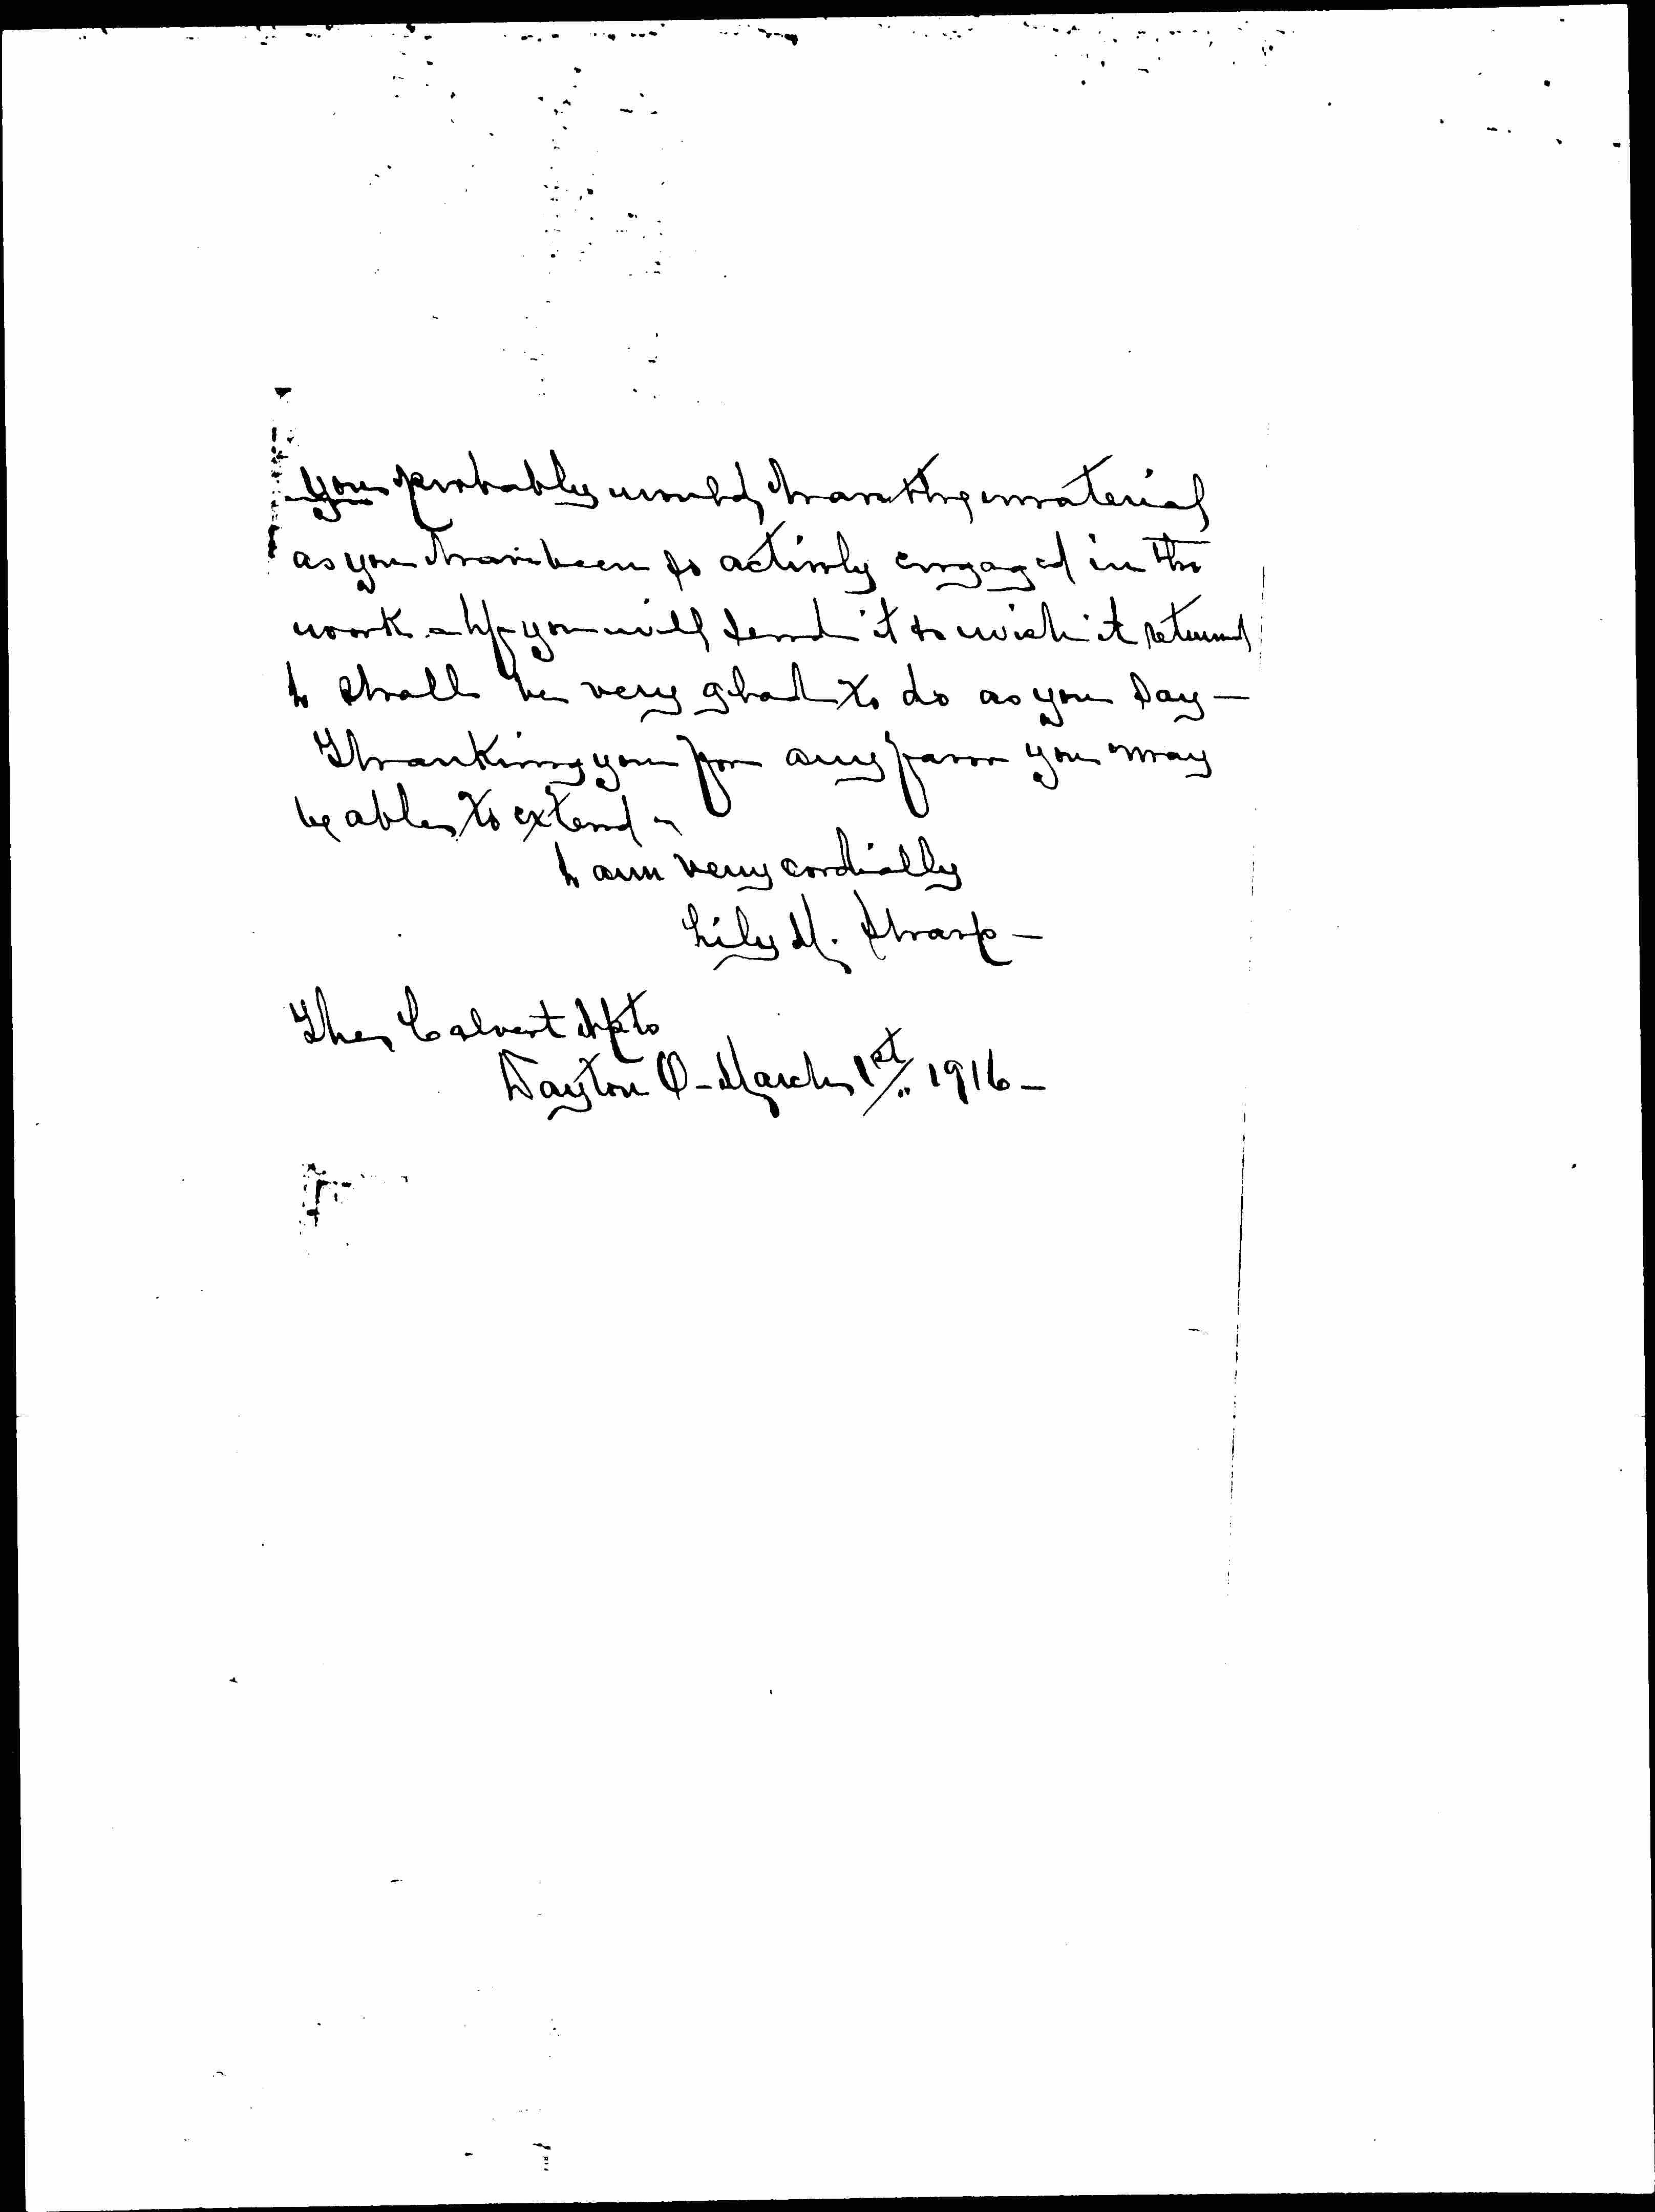 you probably would have the material
as you have been so actively engaged in the
work - If you will send it & wish it returned
I shall be very glad to do as you say -
Thanking you for any favor you may
be able to extend -
I am very cordially
Lily M. Sharp -
The Calvert Apts
Dayton O - March 1st 1916 -